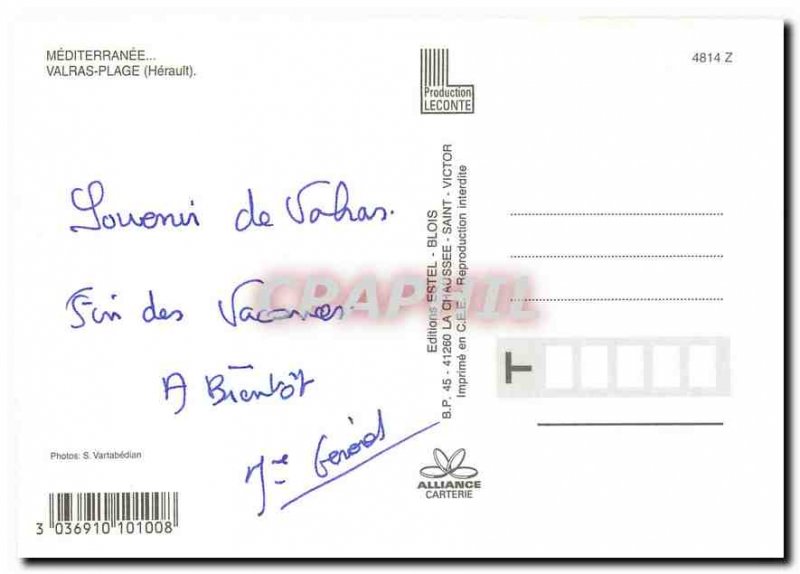 MÉDITERRANÉE...
VALRAS-PLAGE (Hérault).
4814 Z
Production
LECONTE
Souvenir de Valras.
Fin des Vacances.
A Bientôt
Gérard
CPAPHIL
Editions ESTEL - BLOIS
B.P. 45 - 41260 LA CHAUSSEE - SAINT - VICTOR
Imprimé en C.E.E. - Reproduction interdite
T
Photos: S. Vartabédian
ALLIANCE
CARTERIE
3 036910 101008